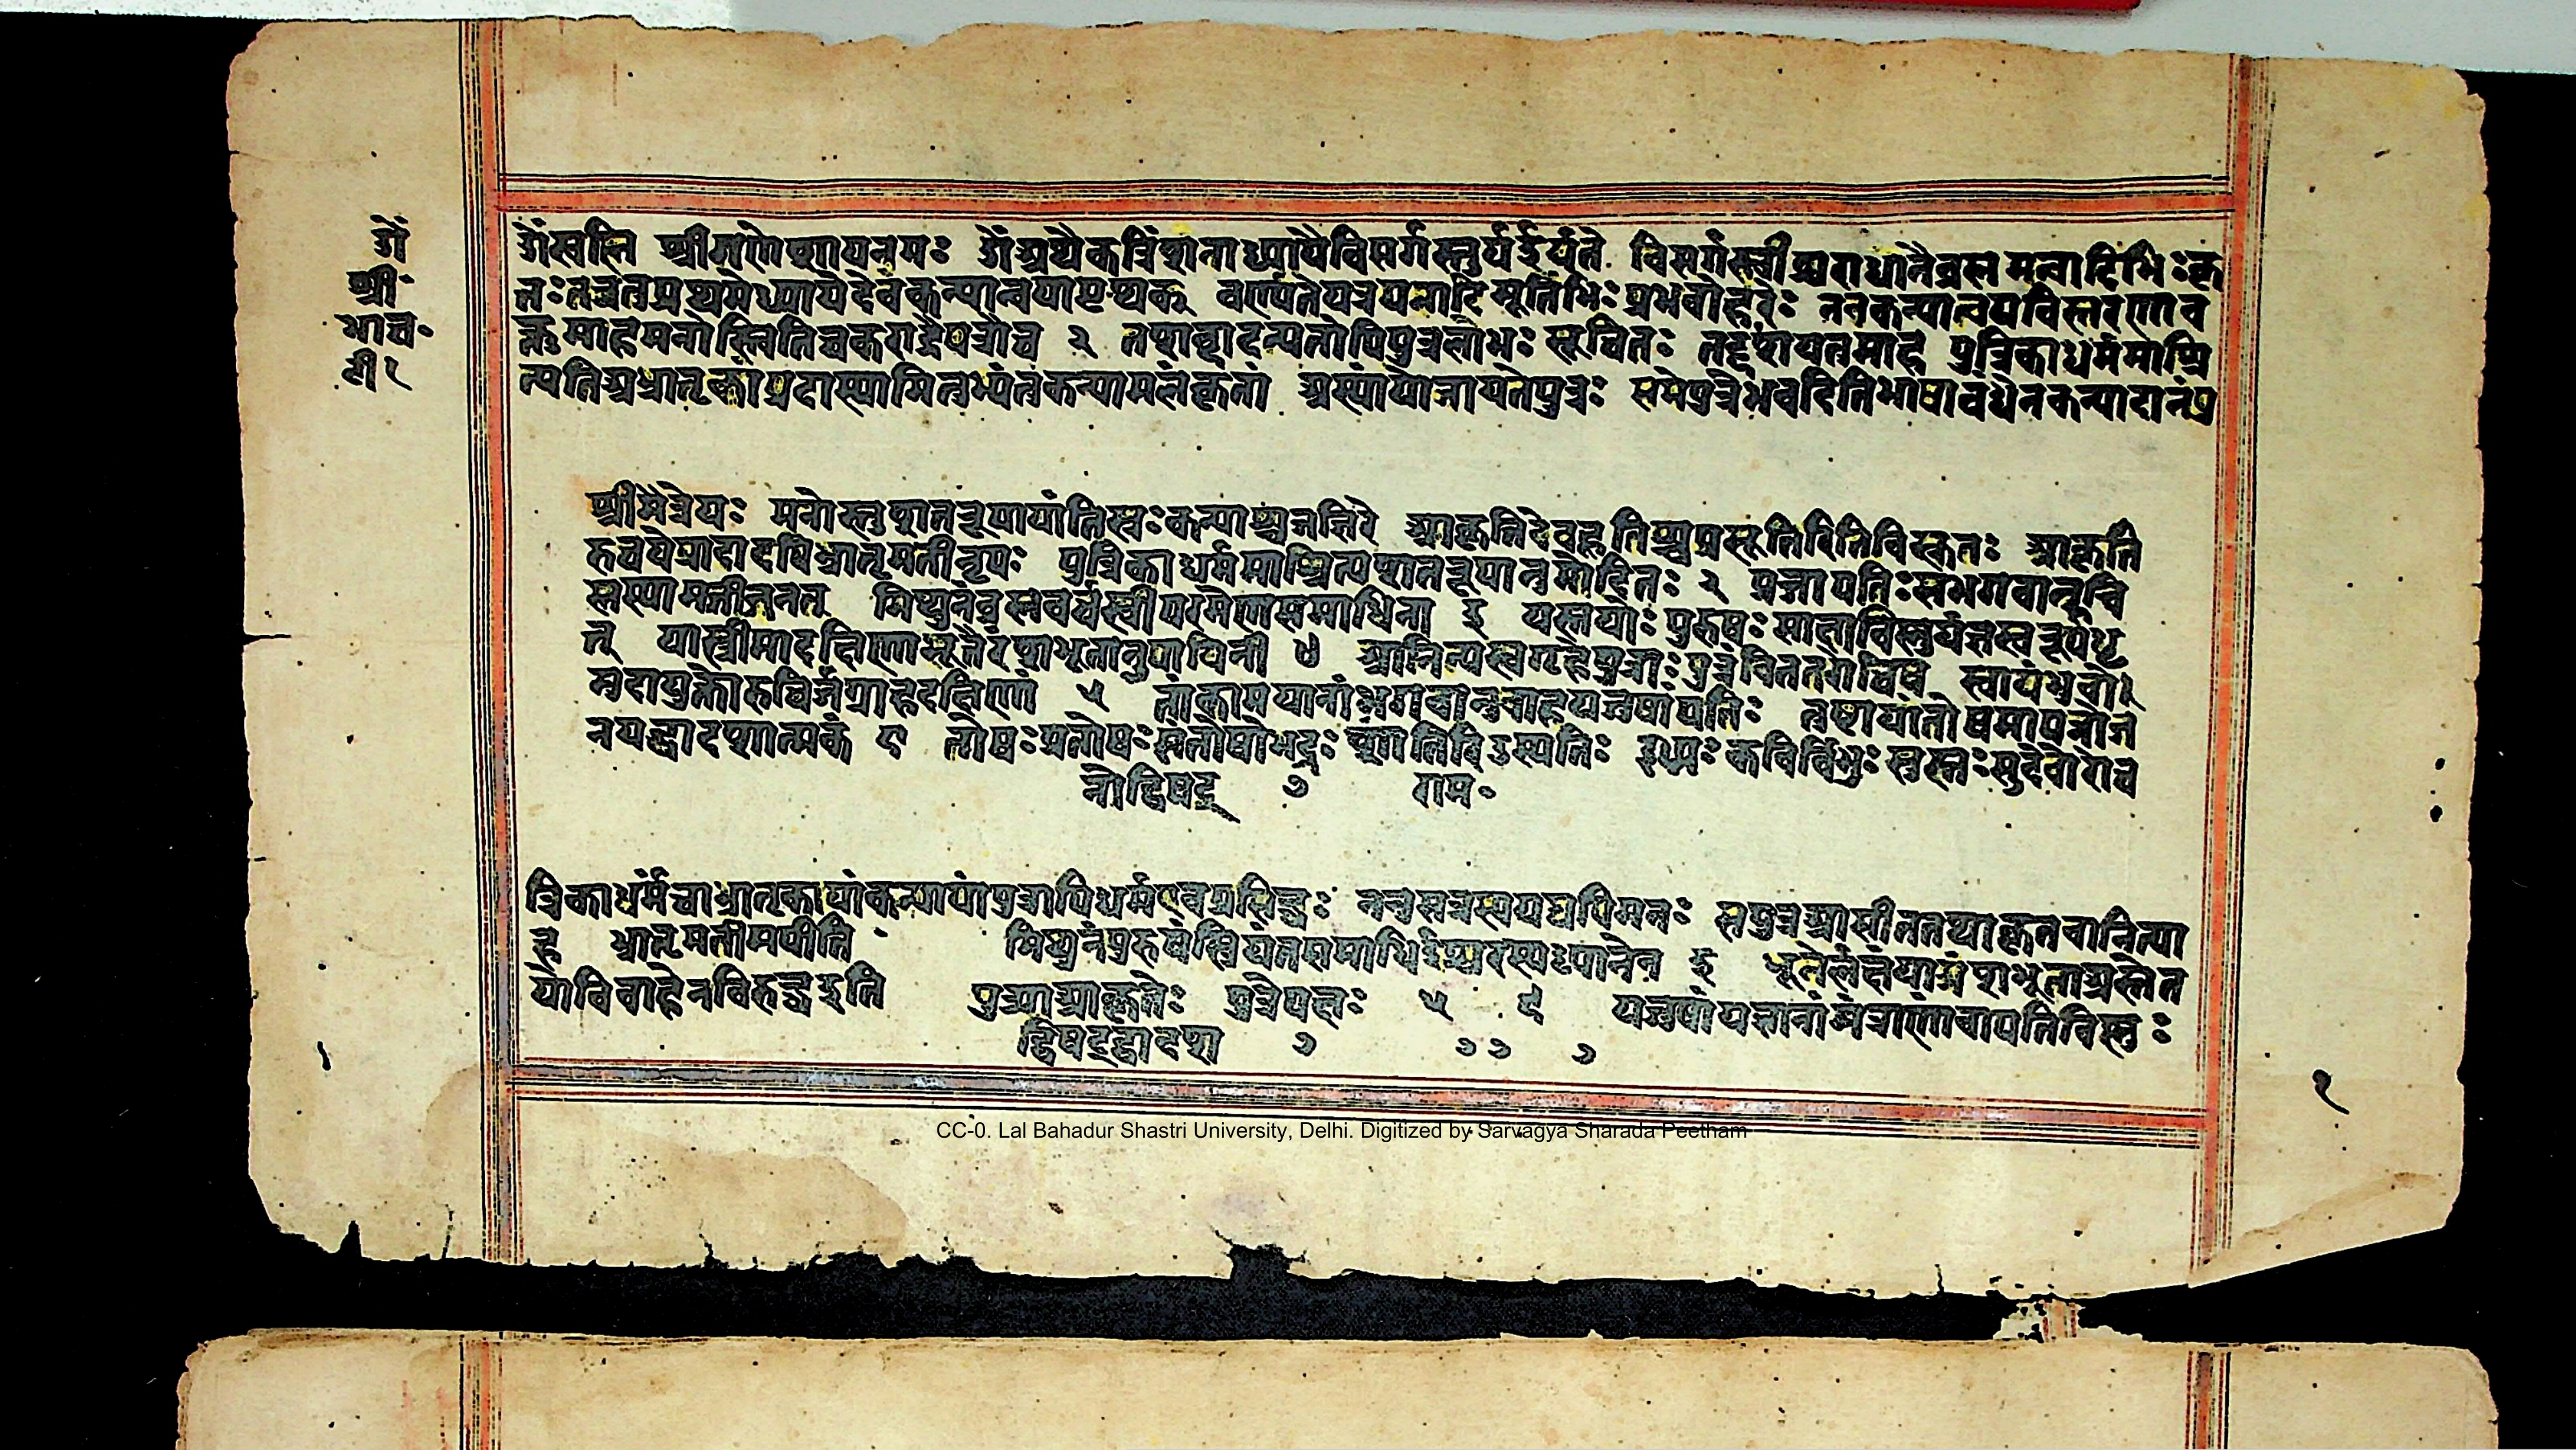 ॐ
श्री
भाच॰
टी१
ॐस्वस्ति श्रीगणेशायनमः ॐअथैकत्रिंशताध्यायैविसर्गस्तुर्यईर्यते विसर्गस्त्वीश्वराधीनैब्रह्ममन्वादिभिःकृ
तःतत्रतुप्रथमेध्यायेदेवकन्यान्वयाःपृथक् वर्ण्यतेयत्रयज्ञादिमूर्तिभिःप्रभवोहरेः ननकन्यान्वयविस्तरणाव
क्तुमाहमनोस्त्वितिचकाराद्वैपुत्रौच २ तशब्दादन्यतोपिपुत्रलाभः सूचितः तद्दर्शयतमाह पुत्रिकाधर्ममाश्रि
त्यतिअभ्रातृकांप्रदास्यामितुभ्यंतकन्यामलंकृतां अस्यांयोजायतेपुत्रः समेपुत्रोभवेदितिभाषाबंधेनकन्यादानंपु
श्रीमैत्रेयः मनोस्तुशतरूपायांतिस्रःकन्याश्चजज्ञिरे आकूतिर्देवहूतिश्चप्रसूतिरितिविश्रुताः आकूतिं
रुचयेप्रादादपिभ्रातृमतींनृपः पुत्रिकाधर्ममाश्रित्यशतरूपानुमोदितः २ प्रजापतिःसभगवान्रुचि
स्तस्यामजीजनत् मिथुनंब्रह्मवर्चस्वीपरमेणसमाधिना ३ यस्तयोःपुरुषःसाक्षाविस्तुर्यज्ञस्वरूपधृ
त् यास्त्रीमादक्षिणाभूतेरंशभूतानुपायिनी ४ आनिन्यस्वगृहेपुत्र्याःपुत्रंविततरोचिषं स्वायंभुवो
मुदायुक्तोरुचिर्जग्राहदक्षिणां ५ तांकामयानांभगवानुवाहयजुषांपतिः तुष्टायांतोषमापन्नोज
नयद्वादशात्मजं ६ तोषःप्रतोषःसंतोषोभद्रःशांतिरिडस्पतिः इध्मःकविर्विभुःस्वह्नःसुदेवोरोच
नोद्विषट् ७ राम॰
त्रिकाधर्मंचाभ्रातृकायांकन्यायांपुत्रार्थिधर्मएवप्रसिद्धः
ह भ्रातृमतीमपीति मिथुनंपुरुषंस्त्रियंचतसमाधिईश्वरस्यध्यानेन ३ भूतेर्लक्ष्म्याअंशभूताअस्तेत
योविवाहेनविरुद्धइति पुत्र्याआकूतेः पुत्रंयज्ञः ५ ६ यजुषांयज्ञानांमंत्राणांवापतिविस्तुः
द्विषट्द्वादश ७ ७७ ७
१
CC-0. Lal Bahadur Shastri University, Delhi. Digitized by Sarvagya Sharada Peetham